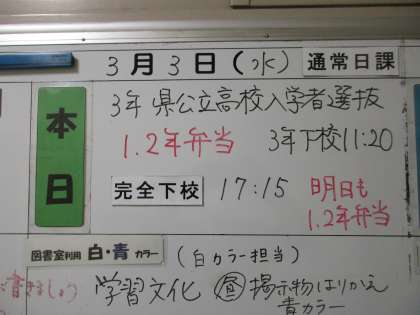 3月3日(水) 通常日課
本日
3年 県公立高校入学者選抜
1.2年弁当 3年下校11:20
完全下校 17:15 明日も
1.2年弁当
図書室利用 白・青 カラー (白カラー担当)
書きましょう 学習文化 昼 掲示物はりかえ
青カラー